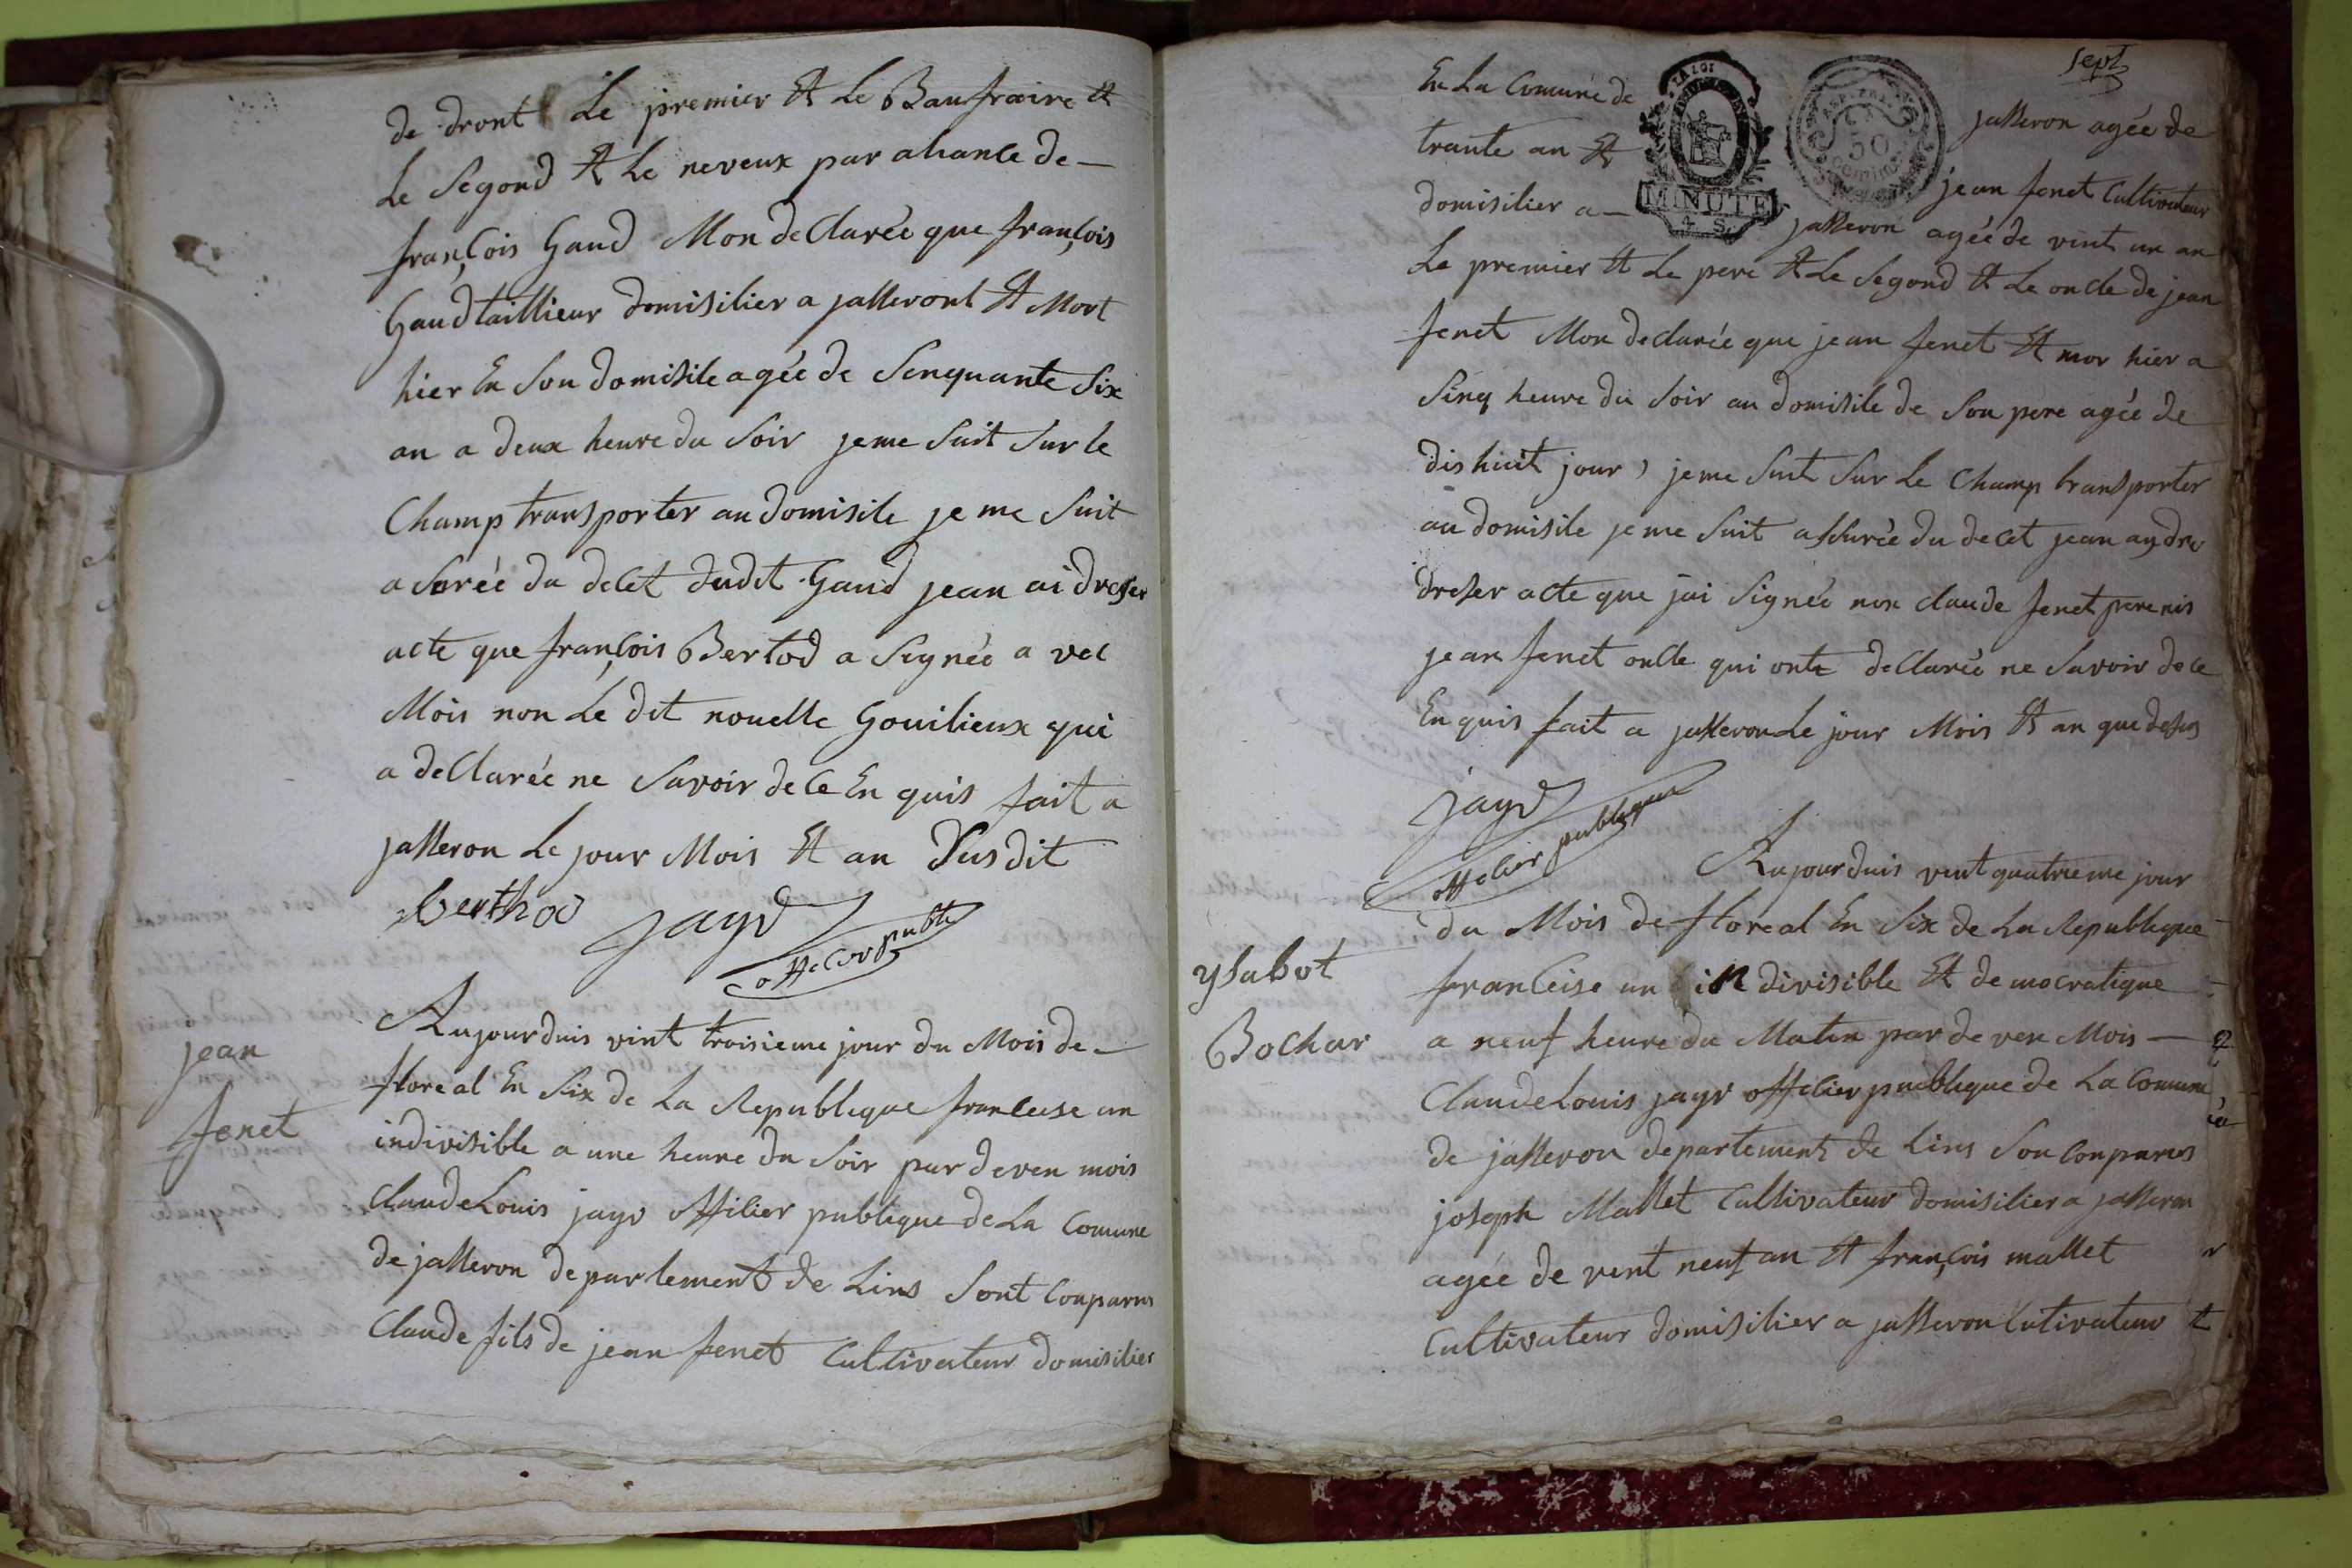 de dront Le premier Et Le Baufraire Et
Le Segond Et Le neveux par aliance de —
françois Gaud Mon declarée que françois
Gaud taillieur domisilier a jasseront Et Mort
hier En Son domisile agée de Senquante Six
an a deux heure du Soir je me Suit Sur le
Champ transporter au domisile je me Suit
a Surée du decet dudit Gaud jean ai dreser
acte que françois Bertod a Signée a vec
Mois non Le dit nouelle Gouilieux qui
a declarée ne Savoir de ce En quis fait a
jasseron Le jour Mois Et an Susdit
berthod jayr
officier publi
jean
fenet
Aujourduis vint troisieme jour du Mois de —
floreal En Six de La Republique franceise un
indivisible a une heure du Soir par deven mois
Claude Louis jayr offilier publique de La Comune
de jasseron departement de Lins Sont Conparus
Claude fils de jean fenet Cultivateur domisilier
sept
En La Comune de jasseron agée de
trante an Et jean fenet Cultivateur
domisilier a — jasseron agée de vint un an
MINUTE
4 S.
50
Le premier Et Le pere Et Le Segond Et Le oncle de jean
fenet Mon declarée que jean fenet Et mor hier a
Sinq heure du Soir au domisile de Son pere agée de
dishuit jour, je me Suit Sur Le Champ transporter
au domisile je me Suit assurée du decet jean ay dre
dreser acte que jai Signée non claude fenet pere nis
jean fenet oncle qui onte declarée ne Savoir de ce
En quis fait a jasseron Le jour Mois Et an que desus
jayr
officier publique
ysabot
Bochar
Aujourduis vent quatrieme jour
du Mois de floreal En Six de La Republique
franceise un indivisible Et democratique
a neuf heure du Matin par de ven Mois —
Claude Louis jayr officier publique de La Comune
de jasseron departement de Lins Son Conparus
joseph Mallet Cultivateur domisilier a jasseron
agée de vent neuf an Et françois mallet
Cultivateur domisilier a jasseron Cutivateur Et